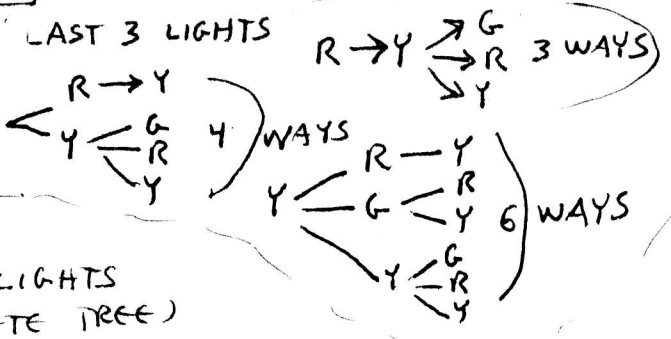 LAST 3 LIGHTS
R → Y → G
→ R 3 WAYS
→ Y
R → Y
Y G
R 4 WAYS
Y
Y R — Y
G R
Y 6 WAYS
Y G
R
Y
LIGHTS
TE TREE)